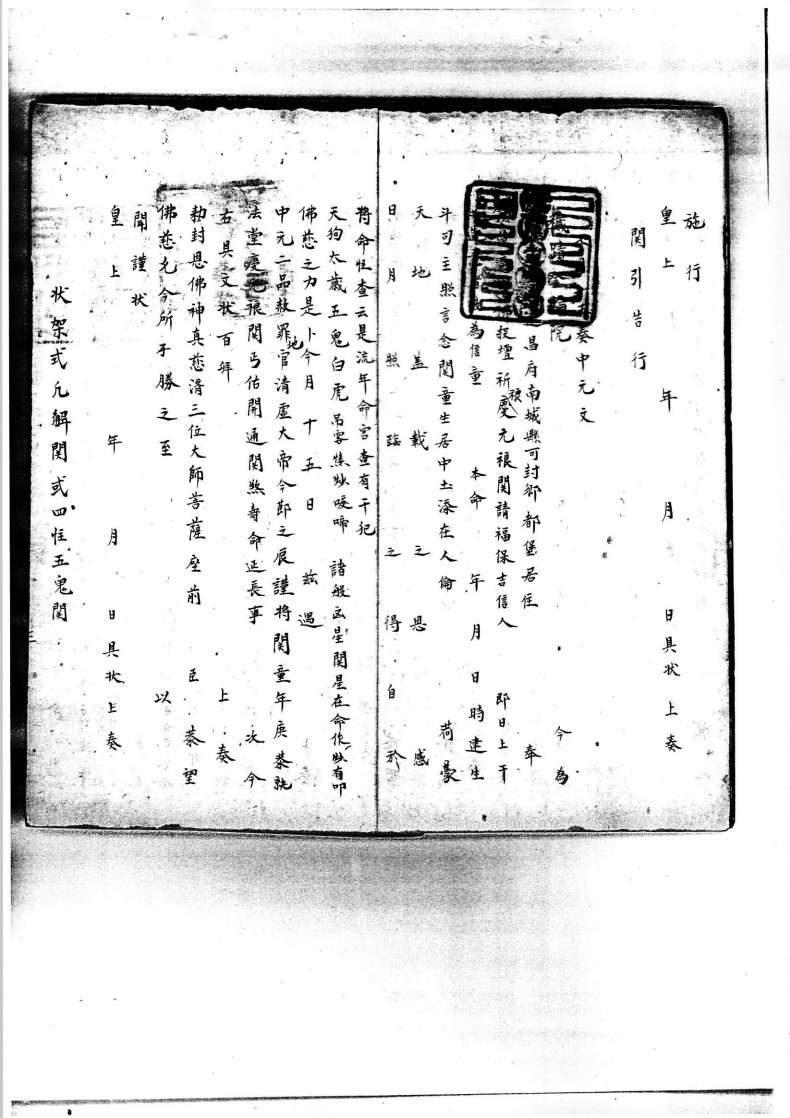 施行
皇上 年 月 日具状上奏
関引告行
奏中元文
院 今為
昌府南城縣可封鄉 都堡居住 奉
投壇祈禳慶元禄関請福保吉信人 即日上干
為信童 本命 年 月 日時建生
斗司主照言念関童生居中土添在人倫 荷蒙
天地蓋載之恩 感
日月照臨之得自於
將命怪查云是流年命宮查有干犯
天狗太歲五鬼白虎吊客 諸般凶星関星在命作 有叩
佛慈之力是卜今月十五日 兹遇
中元二品赦罪地官清虛大帝今節之辰謹將関童年庚恭就
法堂慶元禄関丐佑開通関煞壽命延長事 次今
右具文状百拜 上奏
勅封恩佛神真慈濟三位大師菩薩座前 臣恭望
佛慈允今所禾勝之至 以
聞謹状
皇上 年 月 日具状上奏
状架式凡解関或四怪五鬼関
三